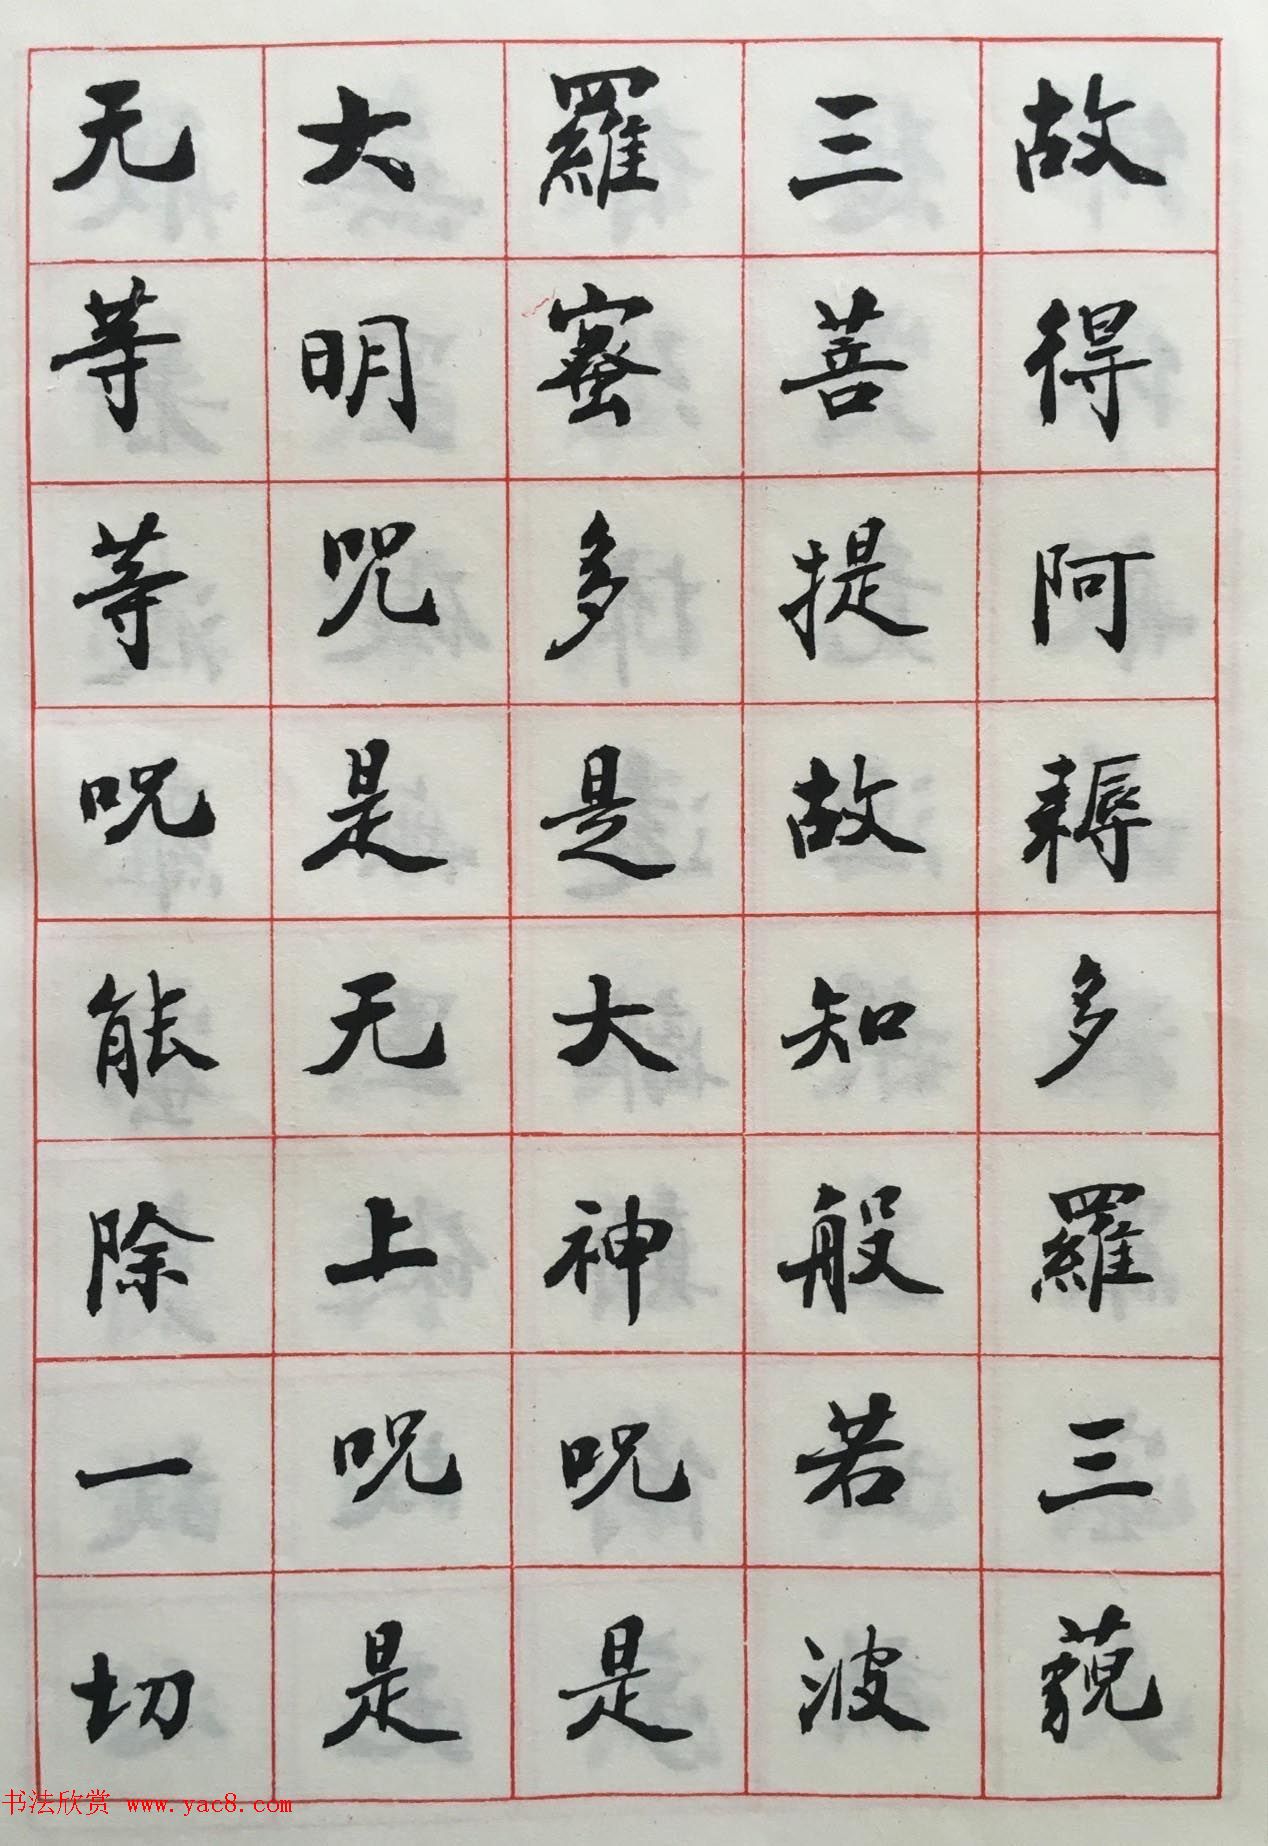 故得阿耨多羅三藐
三菩提故知般若波
羅蜜多是大神呪是
大明呪是无上呪是
无等等呪能除一切
书法欣赏 www.yac8.com